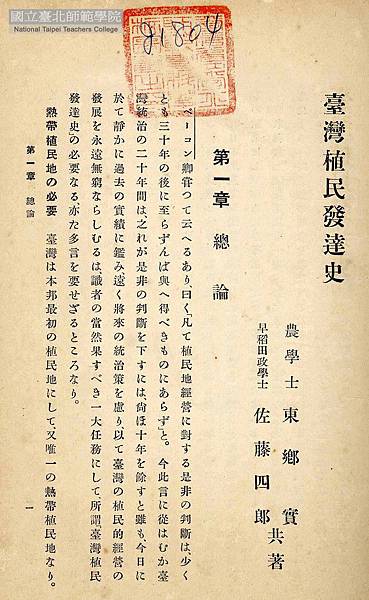 國立臺北師範學院
National Taipei Teachers College
91804
臺灣植民發達史
農學士 東鄉實
早稻田政學士 佐藤四郎
共著
第一章 總論
ベーコン卿嘗つて云へるあり曰く、凡て植民地經營に對する是非の判斷は、少く
とも三十年の後に至らずんば與へ得べきものにあらず」と。今此言に從はむか臺
灣統治の二十年間は、之れが是非の判斷を下すには、尙ほ十年を餘すと雖も、今日に
於て靜かに過去の實績に鑑み遠く將來の統治策を慮り以て臺灣の植民的經營の
發展を永遠無窮ならしむるは識者の當然果すべき一大任務にして、所謂「臺灣植民
發達史」の必要なる亦た多言を要せざるところなり。
熱帶植民地の必要 臺灣は本邦最初の植民地にして、又唯一の熱帶植民地なり。
第一章 總論
一